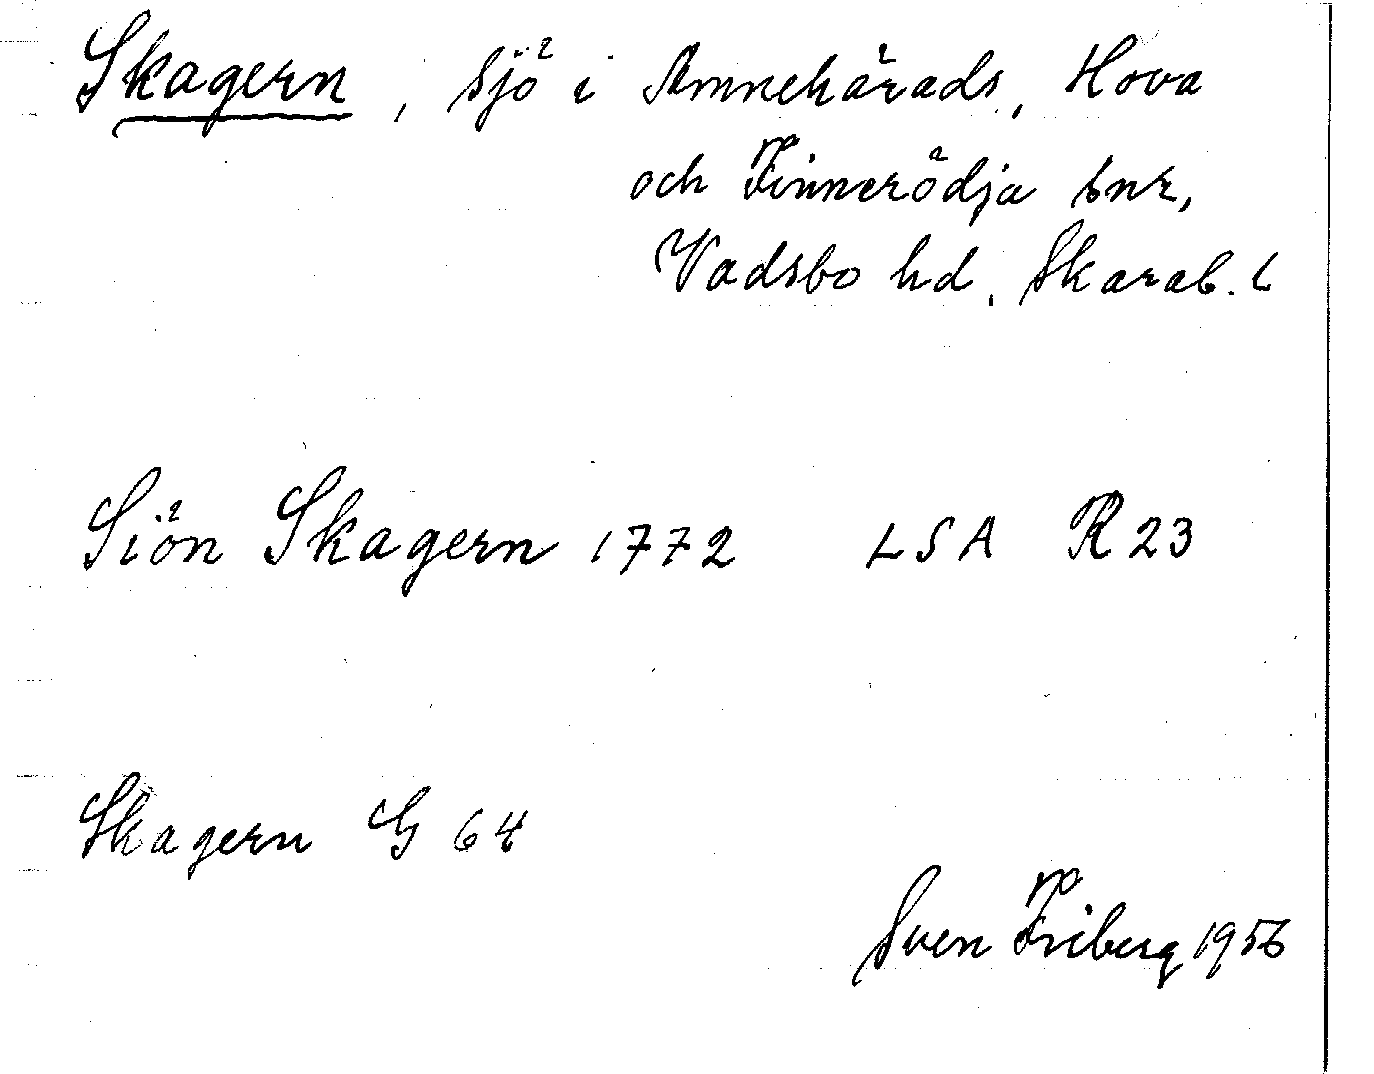 Skagern, sjö i Amnehärads, Hova
och Finnerödja snr,
Vadsbo hd, Skarab. l
Siön Skagern 1772 LSA R 23
Skagern G 64
Sven Friberg 1956